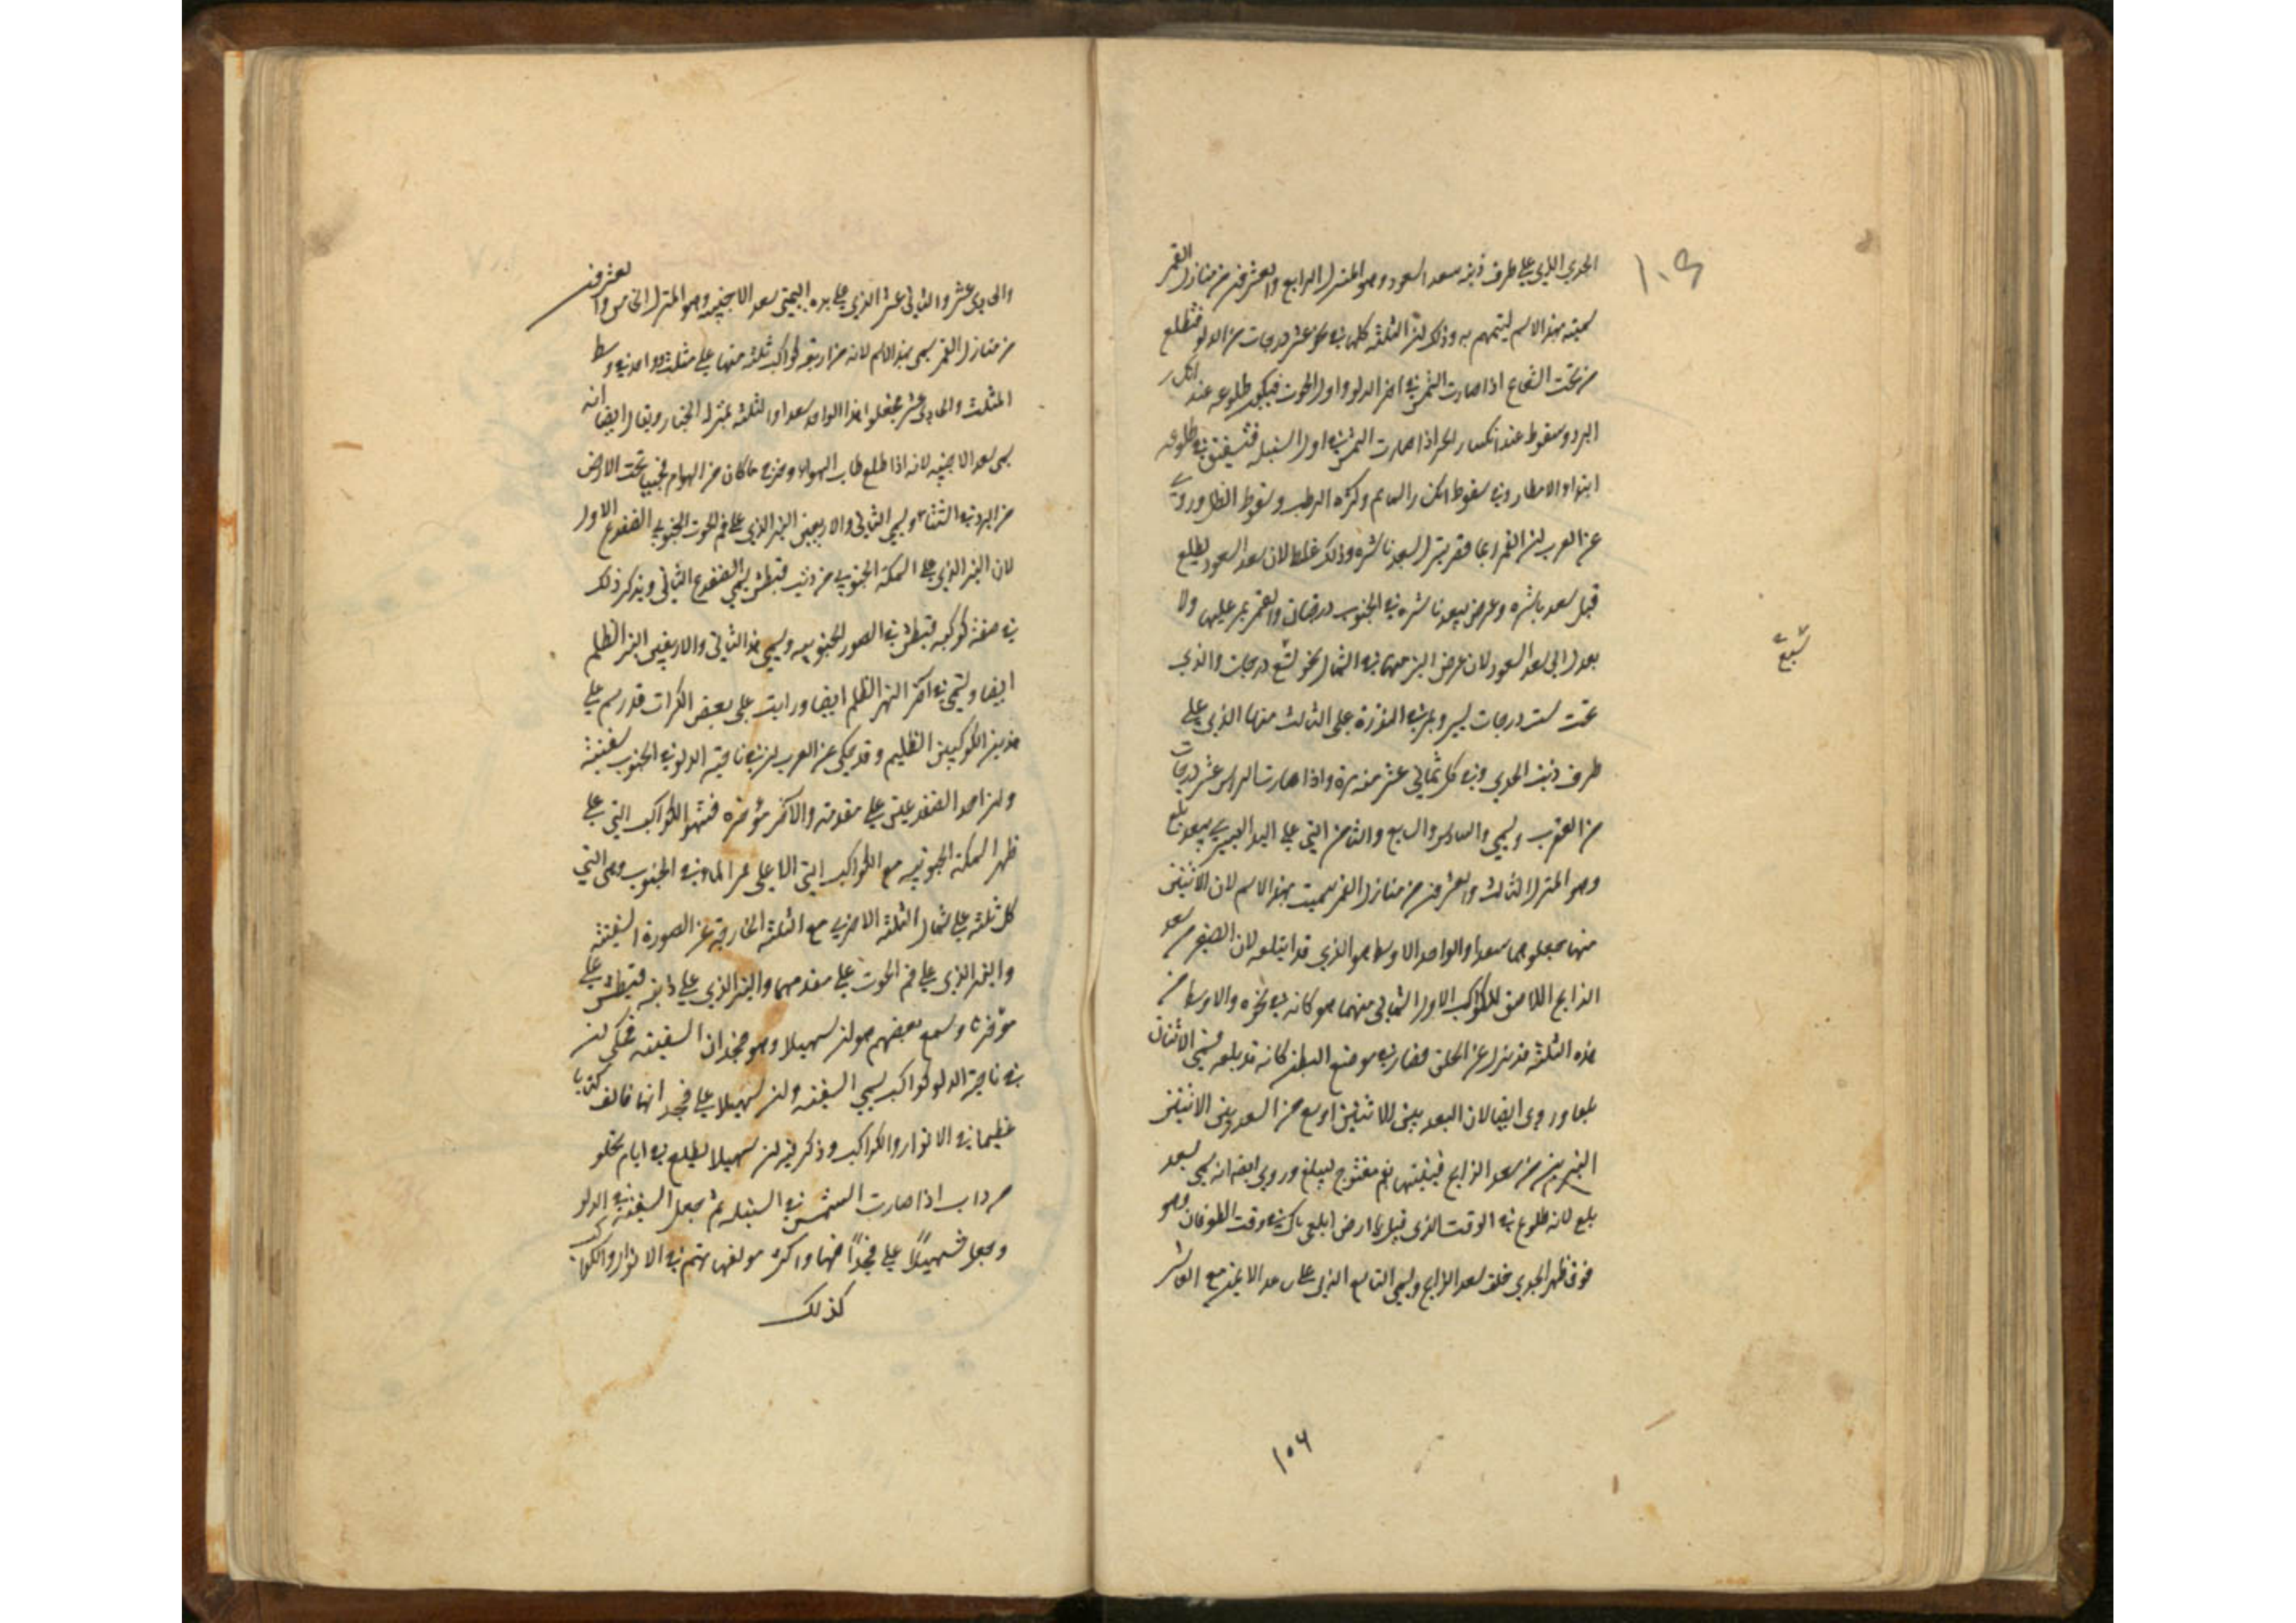 ١٠٩
الجدي الذي على طرف ذنبه سعد السعود وهو المنزل الرابع والعشرون من منازل القمر
سميته بهذا الاسم ليتمنهم به وذلك لان الثلثة كلها في نحو عشر درجات من الدلو فتطلع
من تحت الشعاع اذا صارت الشمس في اخر الدلو واول الحوت فيكون طلوعه عند انكسار
البرد وسقوطه عند انكسار الحر اذا صارت الشمس في اول السنبله فتتفق في طلوعه
ابتداء الامطار وفي سقوطه انكسار السمايم وكثرة الرطب وسقوط الطل وروي
عن العرب ان القمر ربما قصر بنزل بسعد ناشره وذلك غلط لان سعد السعود يطلع
قبل سعد ناشره وعرض سعد ناشره في الجنوب درجتان والقمر يمر عليها ولا
يعدل الى سعد السعود لان عرض النير منها في الشمال نحو تسع درجات والذي
تسع
تحت ست درجات يسير ويمر في المدة على الثالث منها الذي على
طرف ذنب الجدي وفي كل ثماني عشر سنه مرة واذا صارت الراس عشر درجات
من العقرب ويسمي السادس والسابع والثامن التي على اليد اليسري سعد بلع
وهو المنزل الثالث والعشرون من منازل القمر سميت بهذا الاسم لان الاثنين
منها جعلوهما سعدا والواحد الاوسط هو الذي قد ابتلعه لان الصغير من سعد
الذابح اللاصق للكوكب الاول الشمالي منهما هو كانه في نحره والاوسط من
هذه الثلثة قد نزل عن الحلق فصار في موضع البطن كانه قد بلعه فسمي الاثنان
بلعا وروي ايضا لان البعد بين الاثنين اوسع من البعد بين الاثنين
النيرين من سعد الذابح فشبهتها بفم مفتوح ليبلع وروي ايضا انه سمي سعد
بلع لانه طلوع في الوقت الذي قيل يا ارض ابلعي ماك في وقت الطوفان وهو
فوق ظهر الجدي خلف سعد الذابح ويسمي التاسع الذي على ساعد الايمن مع العاشر
١٠٦
والحادي عشر والثاني عشر الذي على يده اليمني سعد الاخبيه وهو المنزل الخامس والعشرون
من منازل القمر سمي بهذا الاسم لانه من اربعة كواكب ثلثه منها على مثلث وواحد في وسط
المثلث والحادي عشر فجعلوا هذا الواحد سعدا والثلثه بمنزله الخباء ويقال ايضا انه
سمي سعد الاخبيه لانه اذا طلع طاب الهواء وخرج ما كان من الهوام مختبيا تحت الارض
من البرد في الشتاء ويسمي الثاني والاربعين النير الذي على فم الحوت الجنوبي الضفدع الاول
لان النير الذي على السمكة الجنوبي من ذنب قيطس يسمي الضفدع الثاني ويذكر ذلك
في صفة كوكبه قيطس في الصور الجنوبيه ويسمي هذا الثاني والاربعين النير الظليم
ايضا ويسمي في اخر النهر الظليم ايضا ورايت على بعض الكرات قد رسم على
هذين الكوكبين الظليم وقد يحكي عن العرب ان في ناحية الدلو في الجنوب سفينة
وان احد الضفدعين على مقدمه والاخر مؤخره فشبهوا الكواكب التي على
ظهر السمكة الجنوبيه مع الكواكب التي الا على ممر الماء في الجنوب وهي التي
كل ثلثه على شمال الثلثه الاخري مع الثلثه الخارجة عن الصورة السفينه
والنير الذي على فم الحوت على مقدمها والنير الذي على ذنب قيطس على
مؤخره وسمع بعضهم هو ان سهيلا وهو في مجدان السفينه فحكي ان
في ناحية الدلو كواكب يسمي السفينه وان سهيلا على مجدانها فالف كتابا
عظيما في الانوار والكواكب وذكر فيه ان سهيلا يطلع في ايام تخلو
من اب اذا صارت الشمس في السنبله ثم يجعل السفينه في الدلو
ويجعل سهيلا على مجدافها واكثر مولفهم في الانوار والكواكب
كذلك